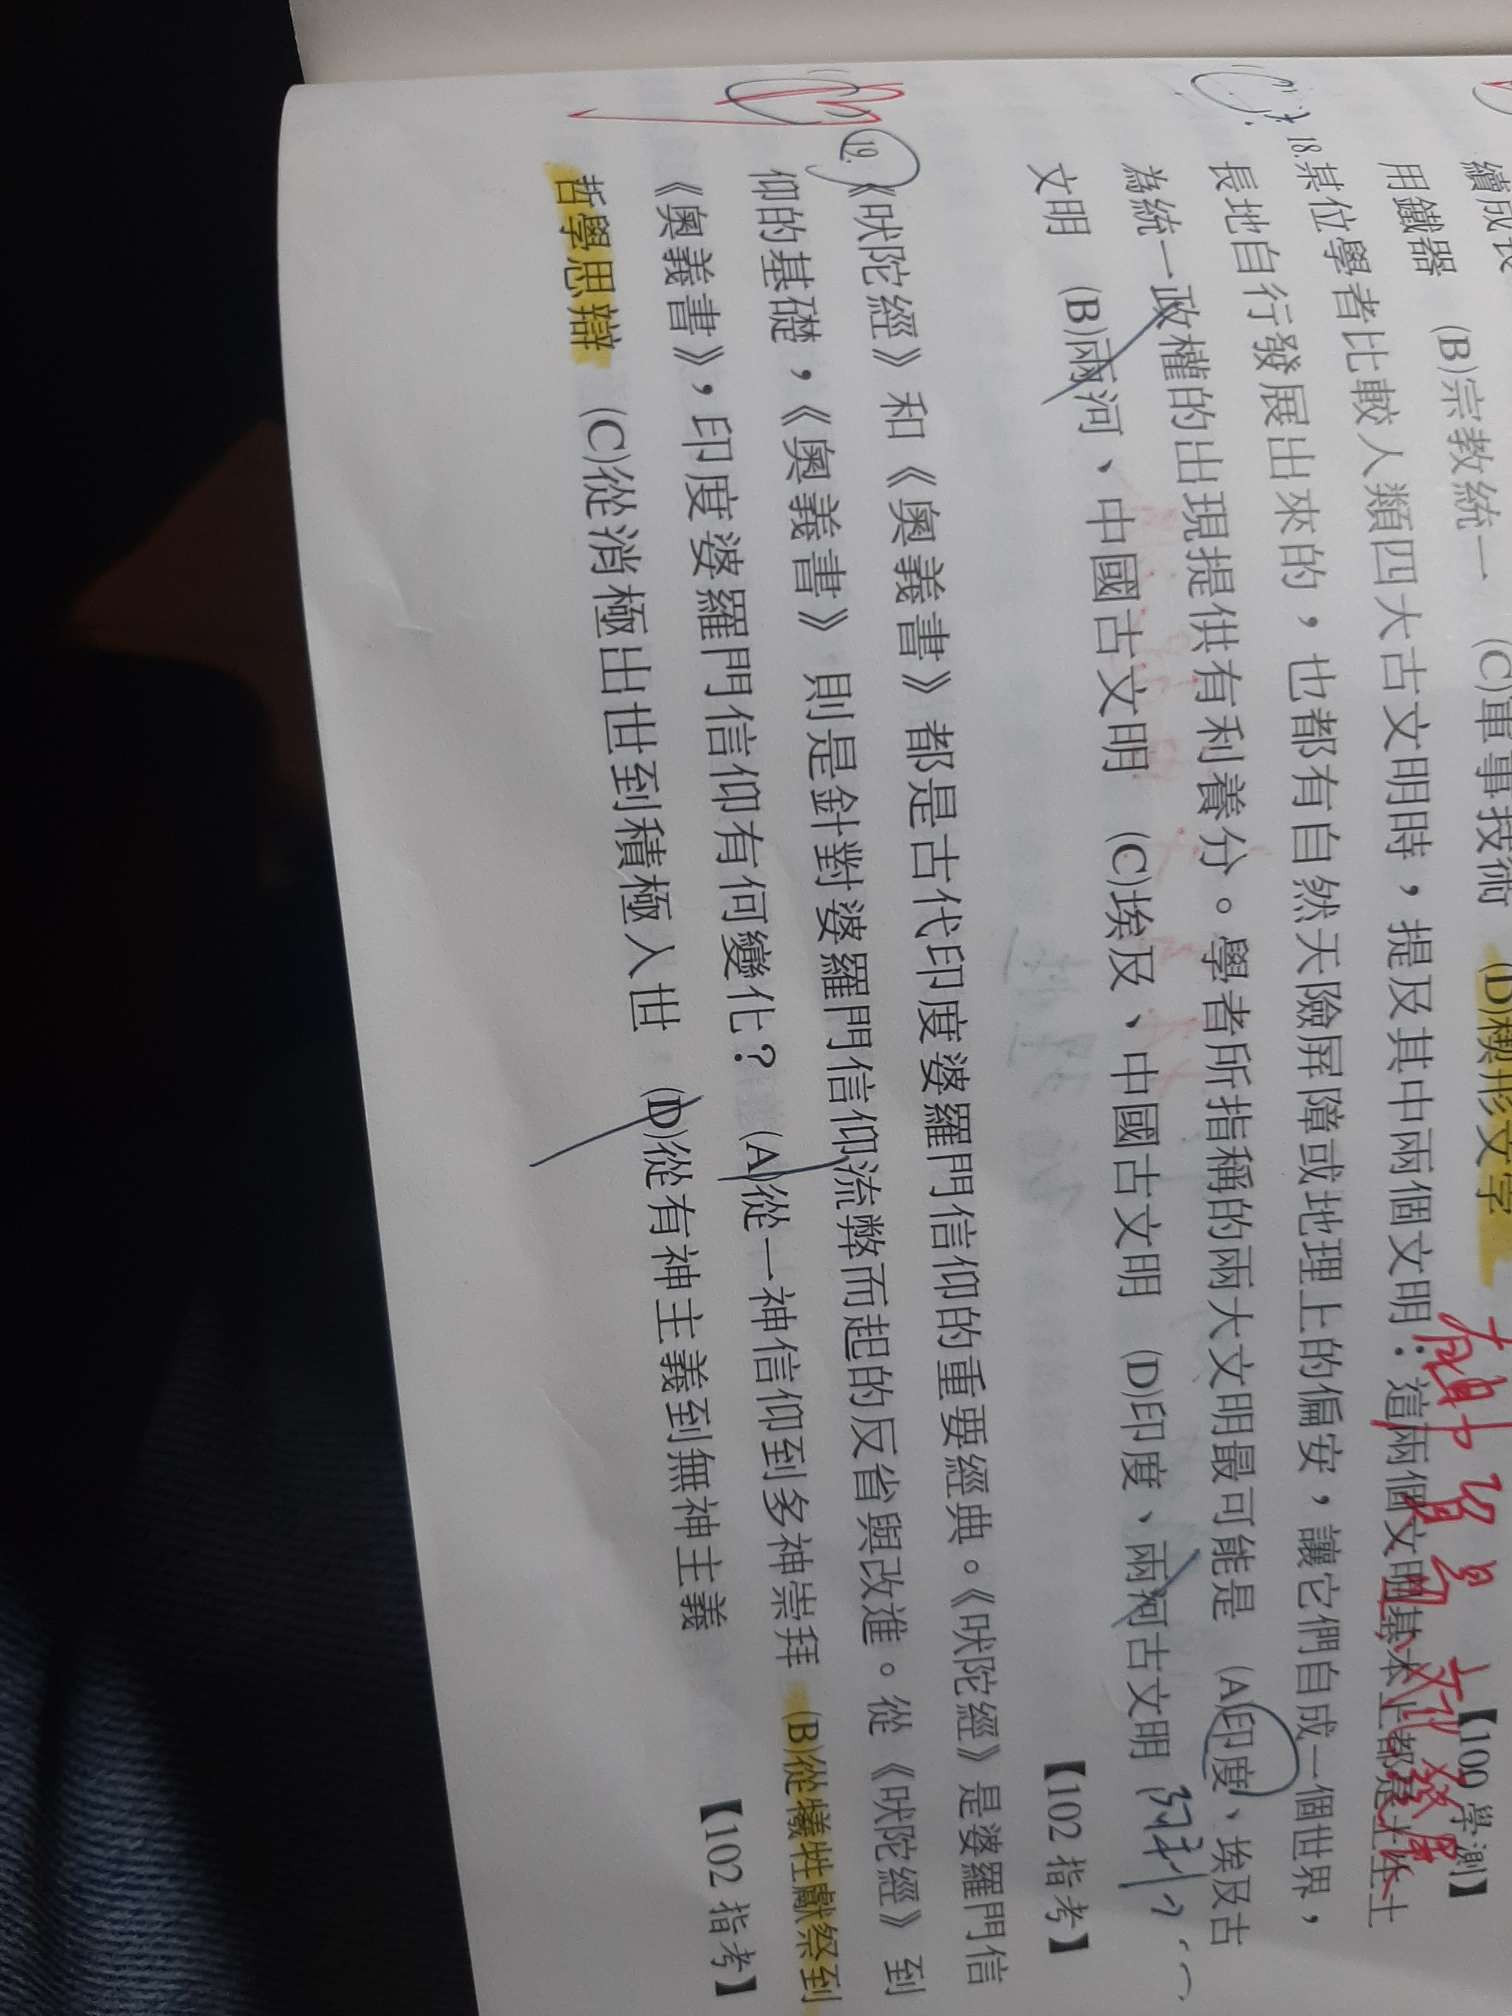 續成長
用鐵器 (B)宗教統一 (C)軍事技術 (D)楔形文字 【100學測】
18.某位學者比較人類四大古文明時，提及其中兩個文明：這兩個文明基本上都是土生土
長地自行發展出來的，也都有自然天險屏障或地理上的偏安，讓它們自成一個世界，
為統一政權的出現提供有利養分。學者所指稱的兩大文明最可能是 (A)印度、埃及古
文明 (B)兩河、中國古文明 (C)埃及、中國古文明 (D)印度、兩河古文明 【102指考】
19.《吠陀經》和《奧義書》都是古代印度婆羅門信仰的重要經典。《吠陀經》是婆羅門信
仰的基礎，《奧義書》則是針對婆羅門信仰流弊而起的反省與改進。從《吠陀經》到
《奧義書》，印度婆羅門信仰有何變化？ (A)從一神信仰到多神崇拜 (B)從犧牲獻祭到
哲學思辯 (C)從消極出世到積極入世 (D)從有神主義到無神主義 【102指考】